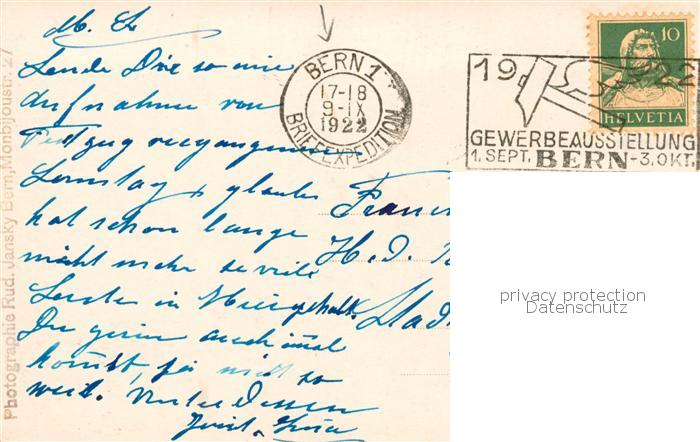 M. L.
Sende Dir so eine
Aufnahme vom
Festzug vergangenen
Samstag & glaube
hat schon lange
nicht mehr so viele
Leute in
Du gerne auch mal
kommst, ja nicht so
weit. Unterdessen
Photographie Rud. Jansky Bern, Monbijoustr. 27
BERN 1
17-18
9-IX
1922
BRIEFEXPEDITION
1922
GEWERBEAUSSTELLUNG
1. SEPT. BERN -3. OKT.
10
HELVETIA
H. J.
privacy protection
Datenschutz